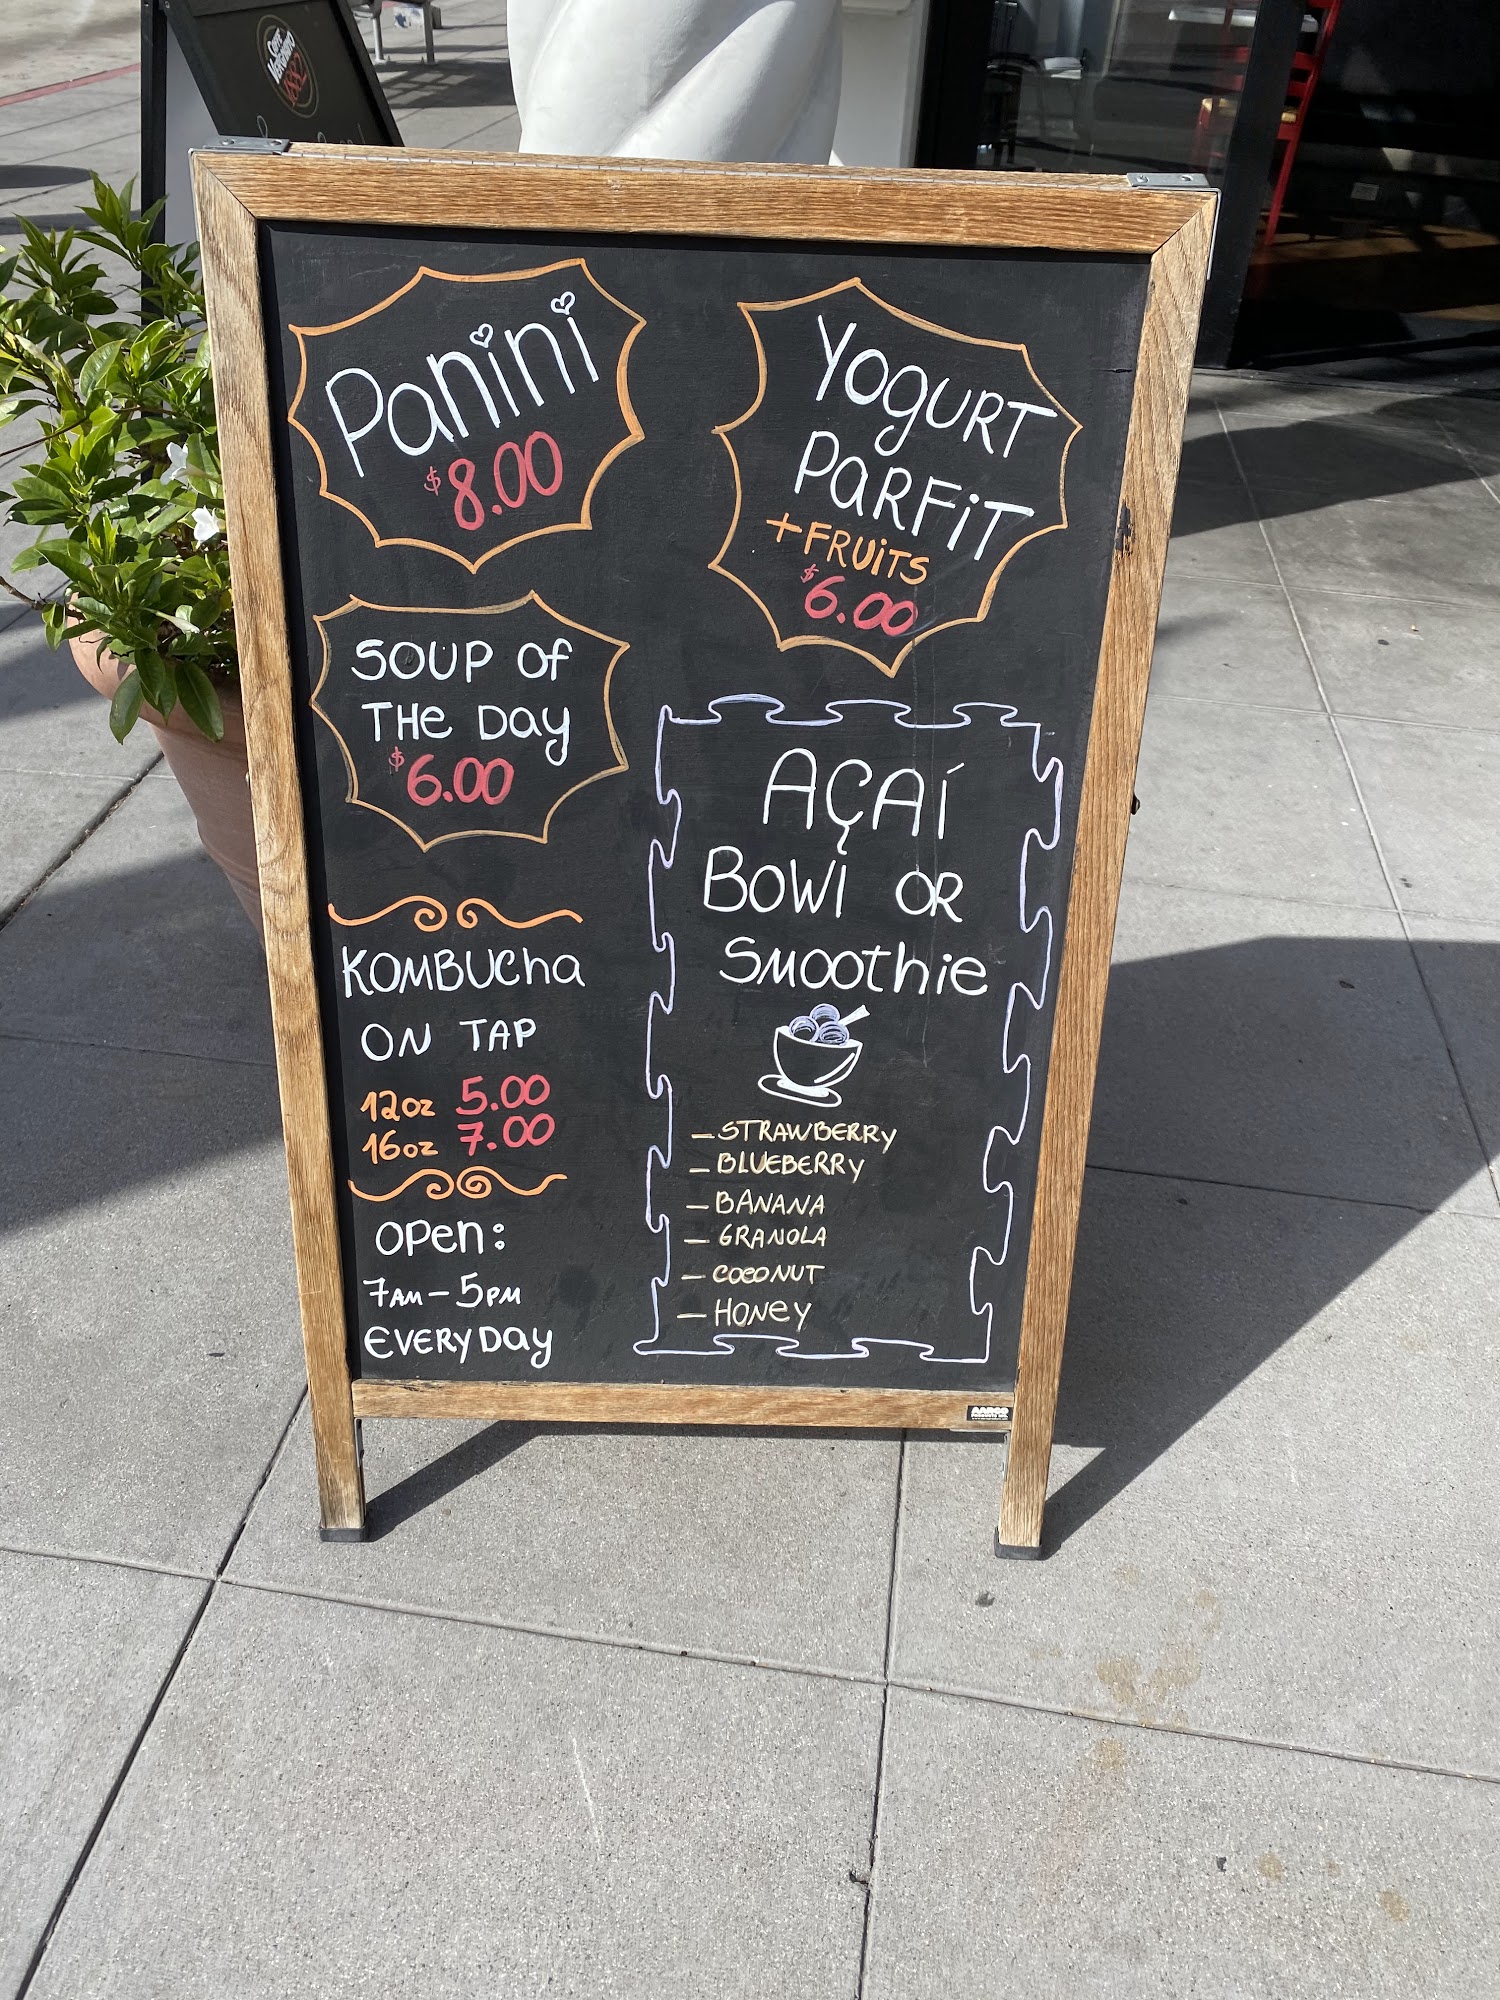 CAFFÈ
VERGNANO
1882
Panini
$8.00
YOGURT
PARFIT
+FRUITS
$6.00
SOUP Of
THE DAY
$6.00
KOMBUCHA
ON TAP
12oz 5.00
16oz 7.00
OPEN:
7AM-5PM
EVERYDAY
AÇAÍ
BOWl OR
Smoothie
-STRAWBERRY
-BLUEBERRY
-BANANA
-GRANOLA
-COCONUT
-HONEY
AARCO